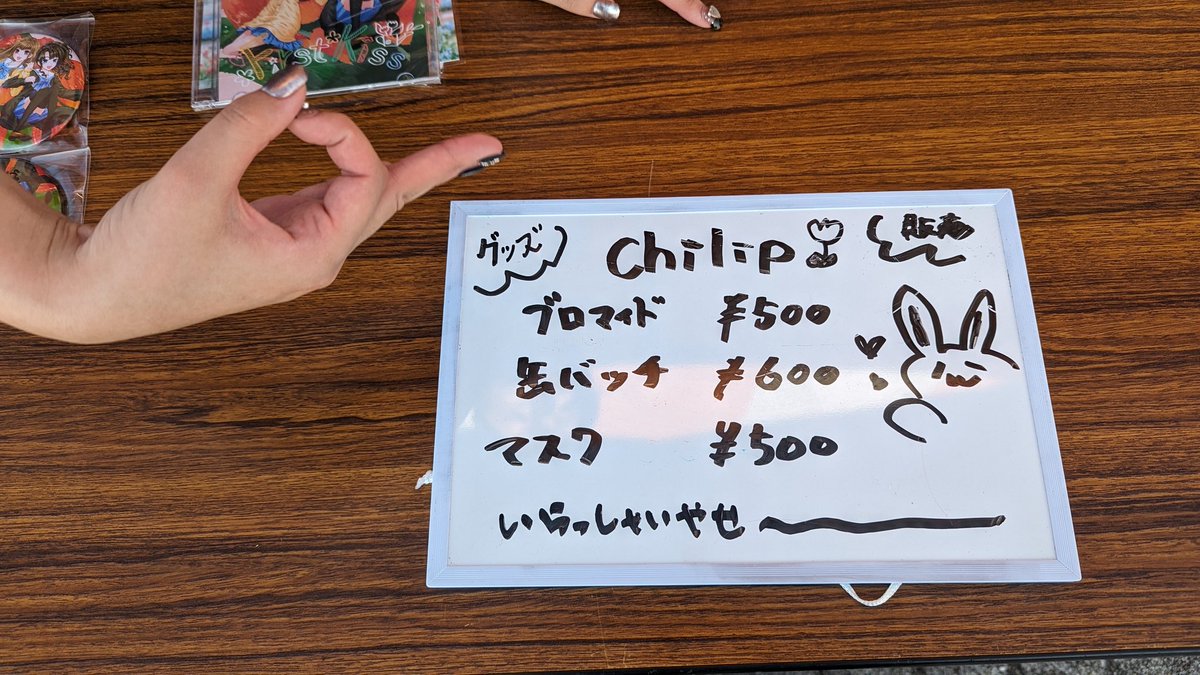 First Kiss
グッズ chilip 販売
ブロマイド ¥500
缶バッチ ¥600
マスク ¥500
いらっしゃいやせ〜